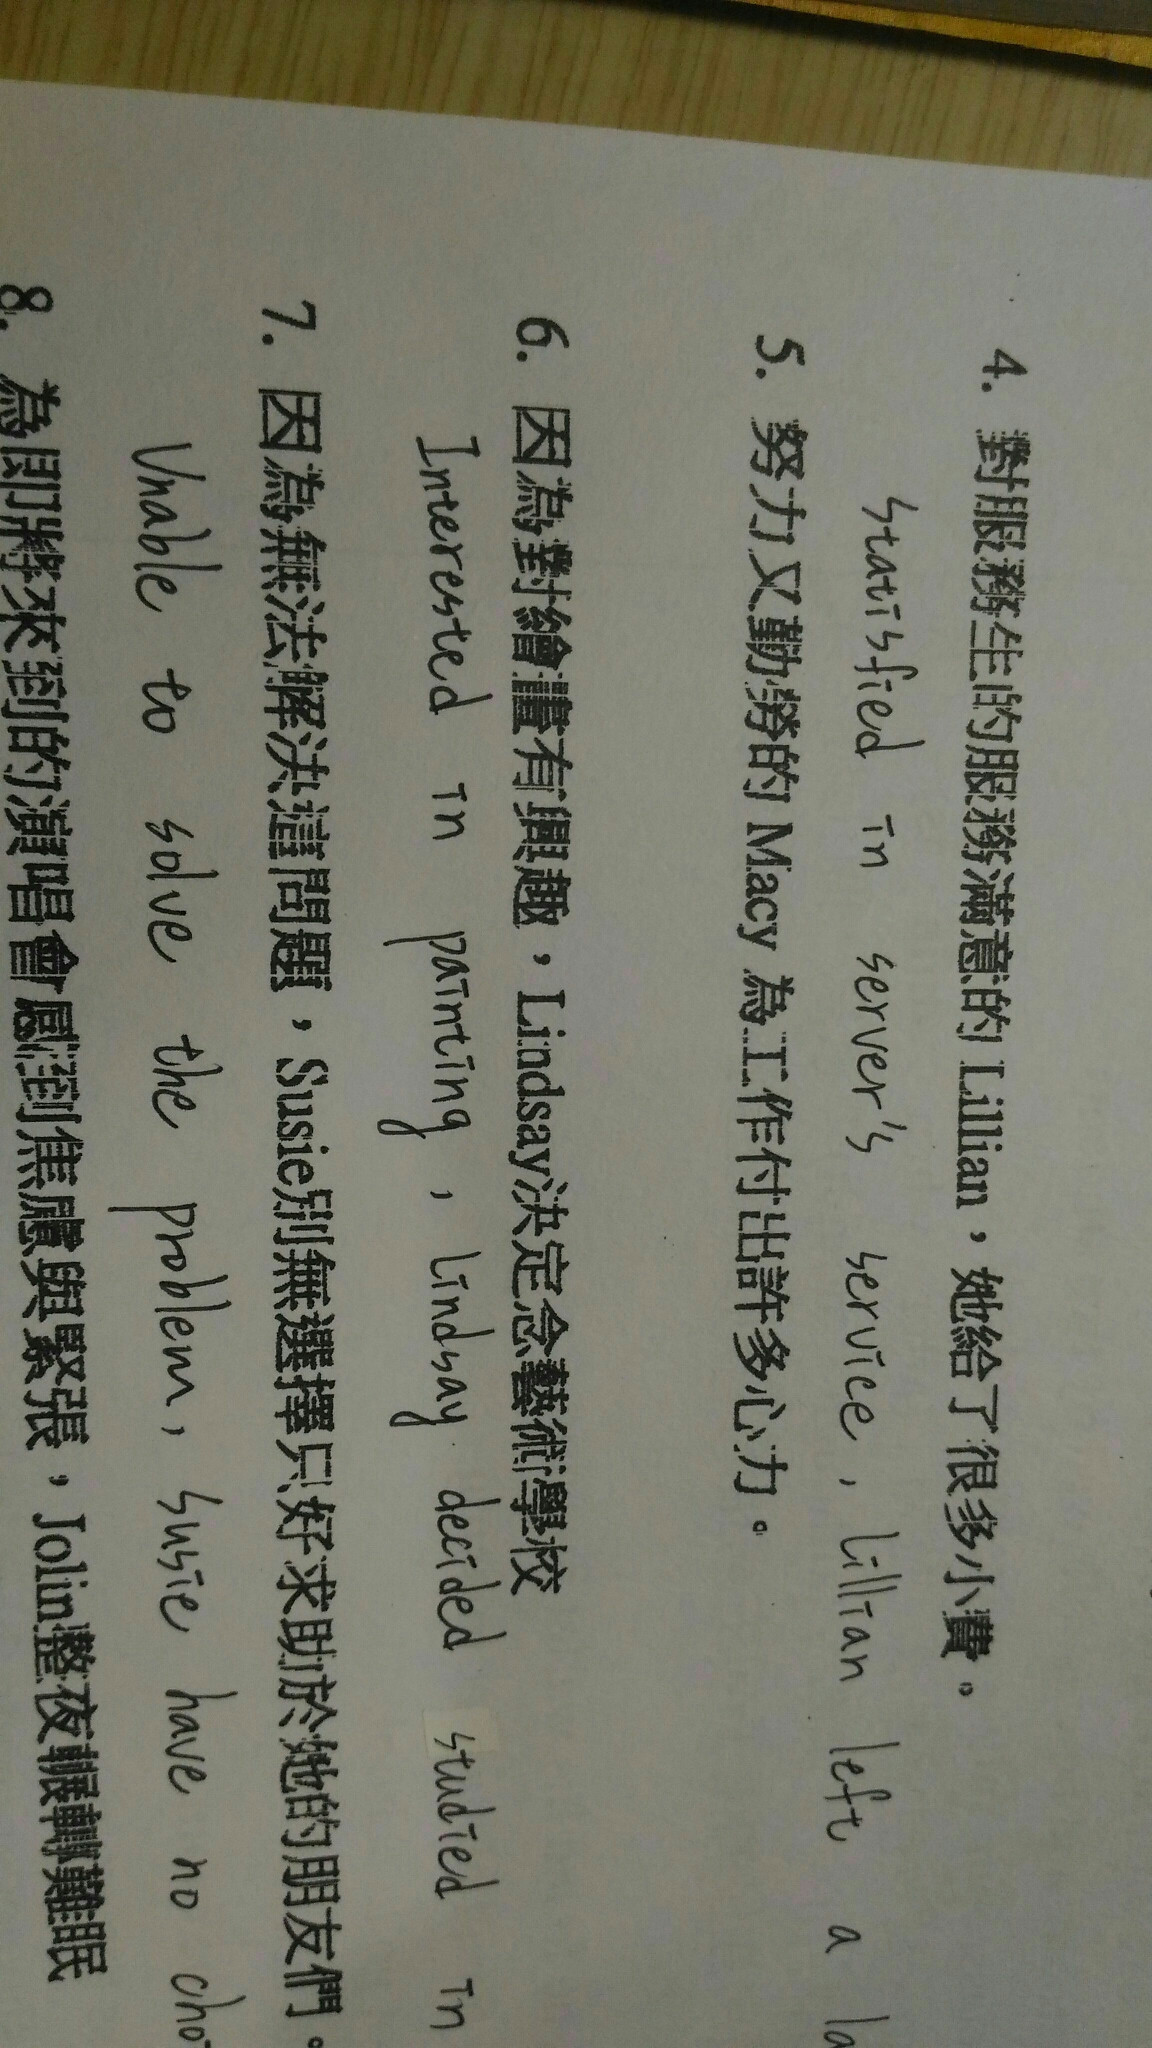 4. 對服務生的服務滿意的 Lillian，她給了很多小費。
statisfied in server's service, Lillian left a la
5. 努力又勤勞的 Macy 為工作付出許多心力。
6. 因為對繪畫有興趣，Lindsay決定念藝術學校
Interested in painting, Lindsay decided studied in
7. 因為無法解決這問題，Susie別無選擇只好求助於她的朋友們。
Unable to solve the problem, susie have no choi
8. 為即將來到的演唱會感到焦慮與緊張，Jolin整夜輾轉難眠